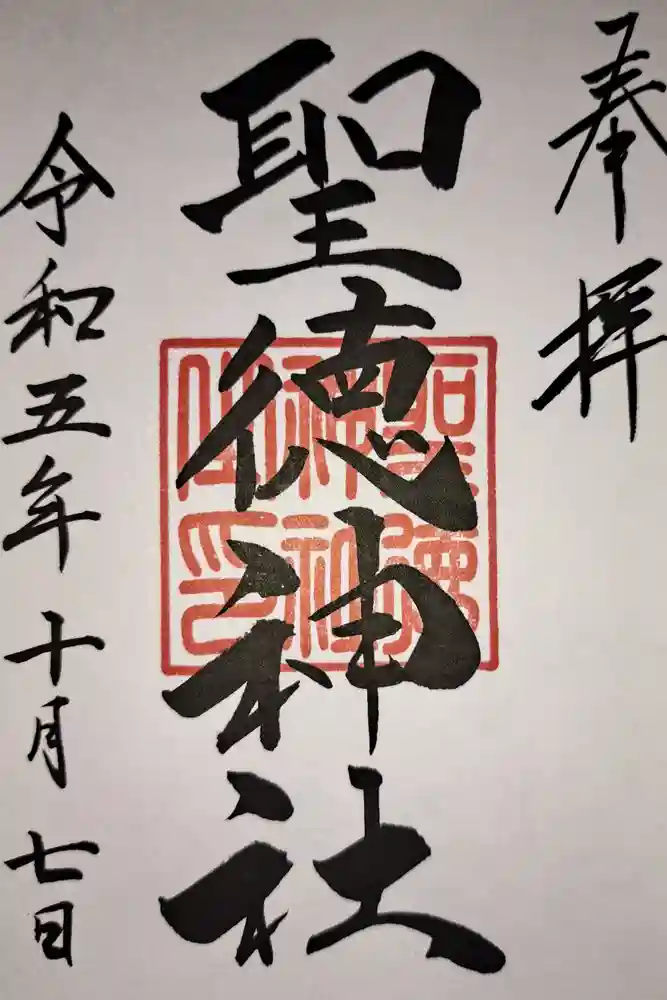 奉拝
聖徳神社
聖徳
神社
之印
令和五年十月七日